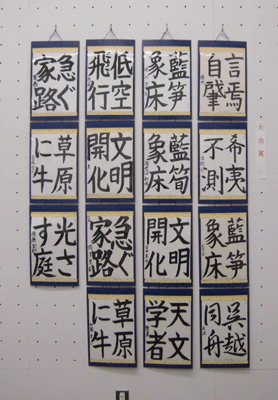 言焉
自
希夷
不測
藍笋
象床
呉越
同舟
藍笋
象床
藍筍
象床
文明
開化
天文
学者
低空
飛行
文明
開化
急ぐ
家路
草原
に牛
急ぐ
家路
草原
に牛
光さ
す庭